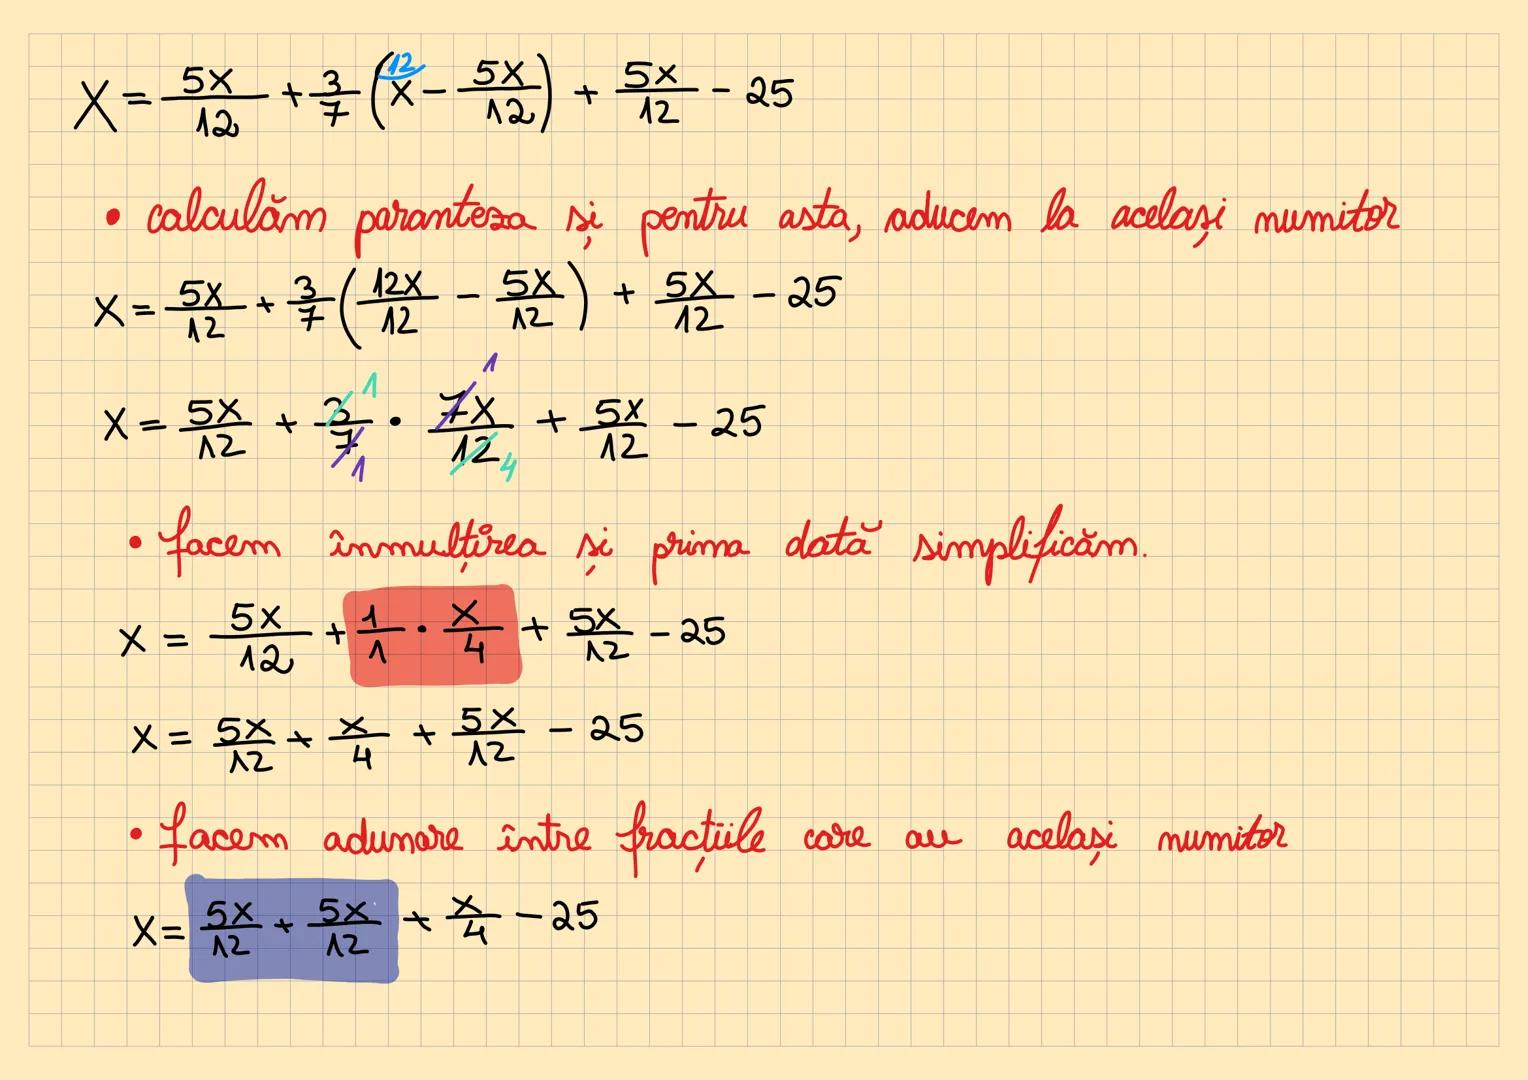 X = 5x/12 + 3/7 (12 x - 5x/12) + 5x/12 - 25
• calculăm paranteza și pentru asta, aducem la același numitor
X = 5X/12 + 3/7 (12X/12 - 5X/12) + 5X/12 - 25
X = 5X/12 + 3/7 1 1 • 7X/12 1 4 + 5X/12 - 25
• facem înmulțirea și prima dată simplificăm.
X = 5X/12 + 1/1 • X/4 + 5X/12 - 25
X = 5X/12 + X/4 + 5X/12 - 25
• facem adunare între fracțiile care au același numitor
X = 5X/12 + 5X/12 + X/4 - 25